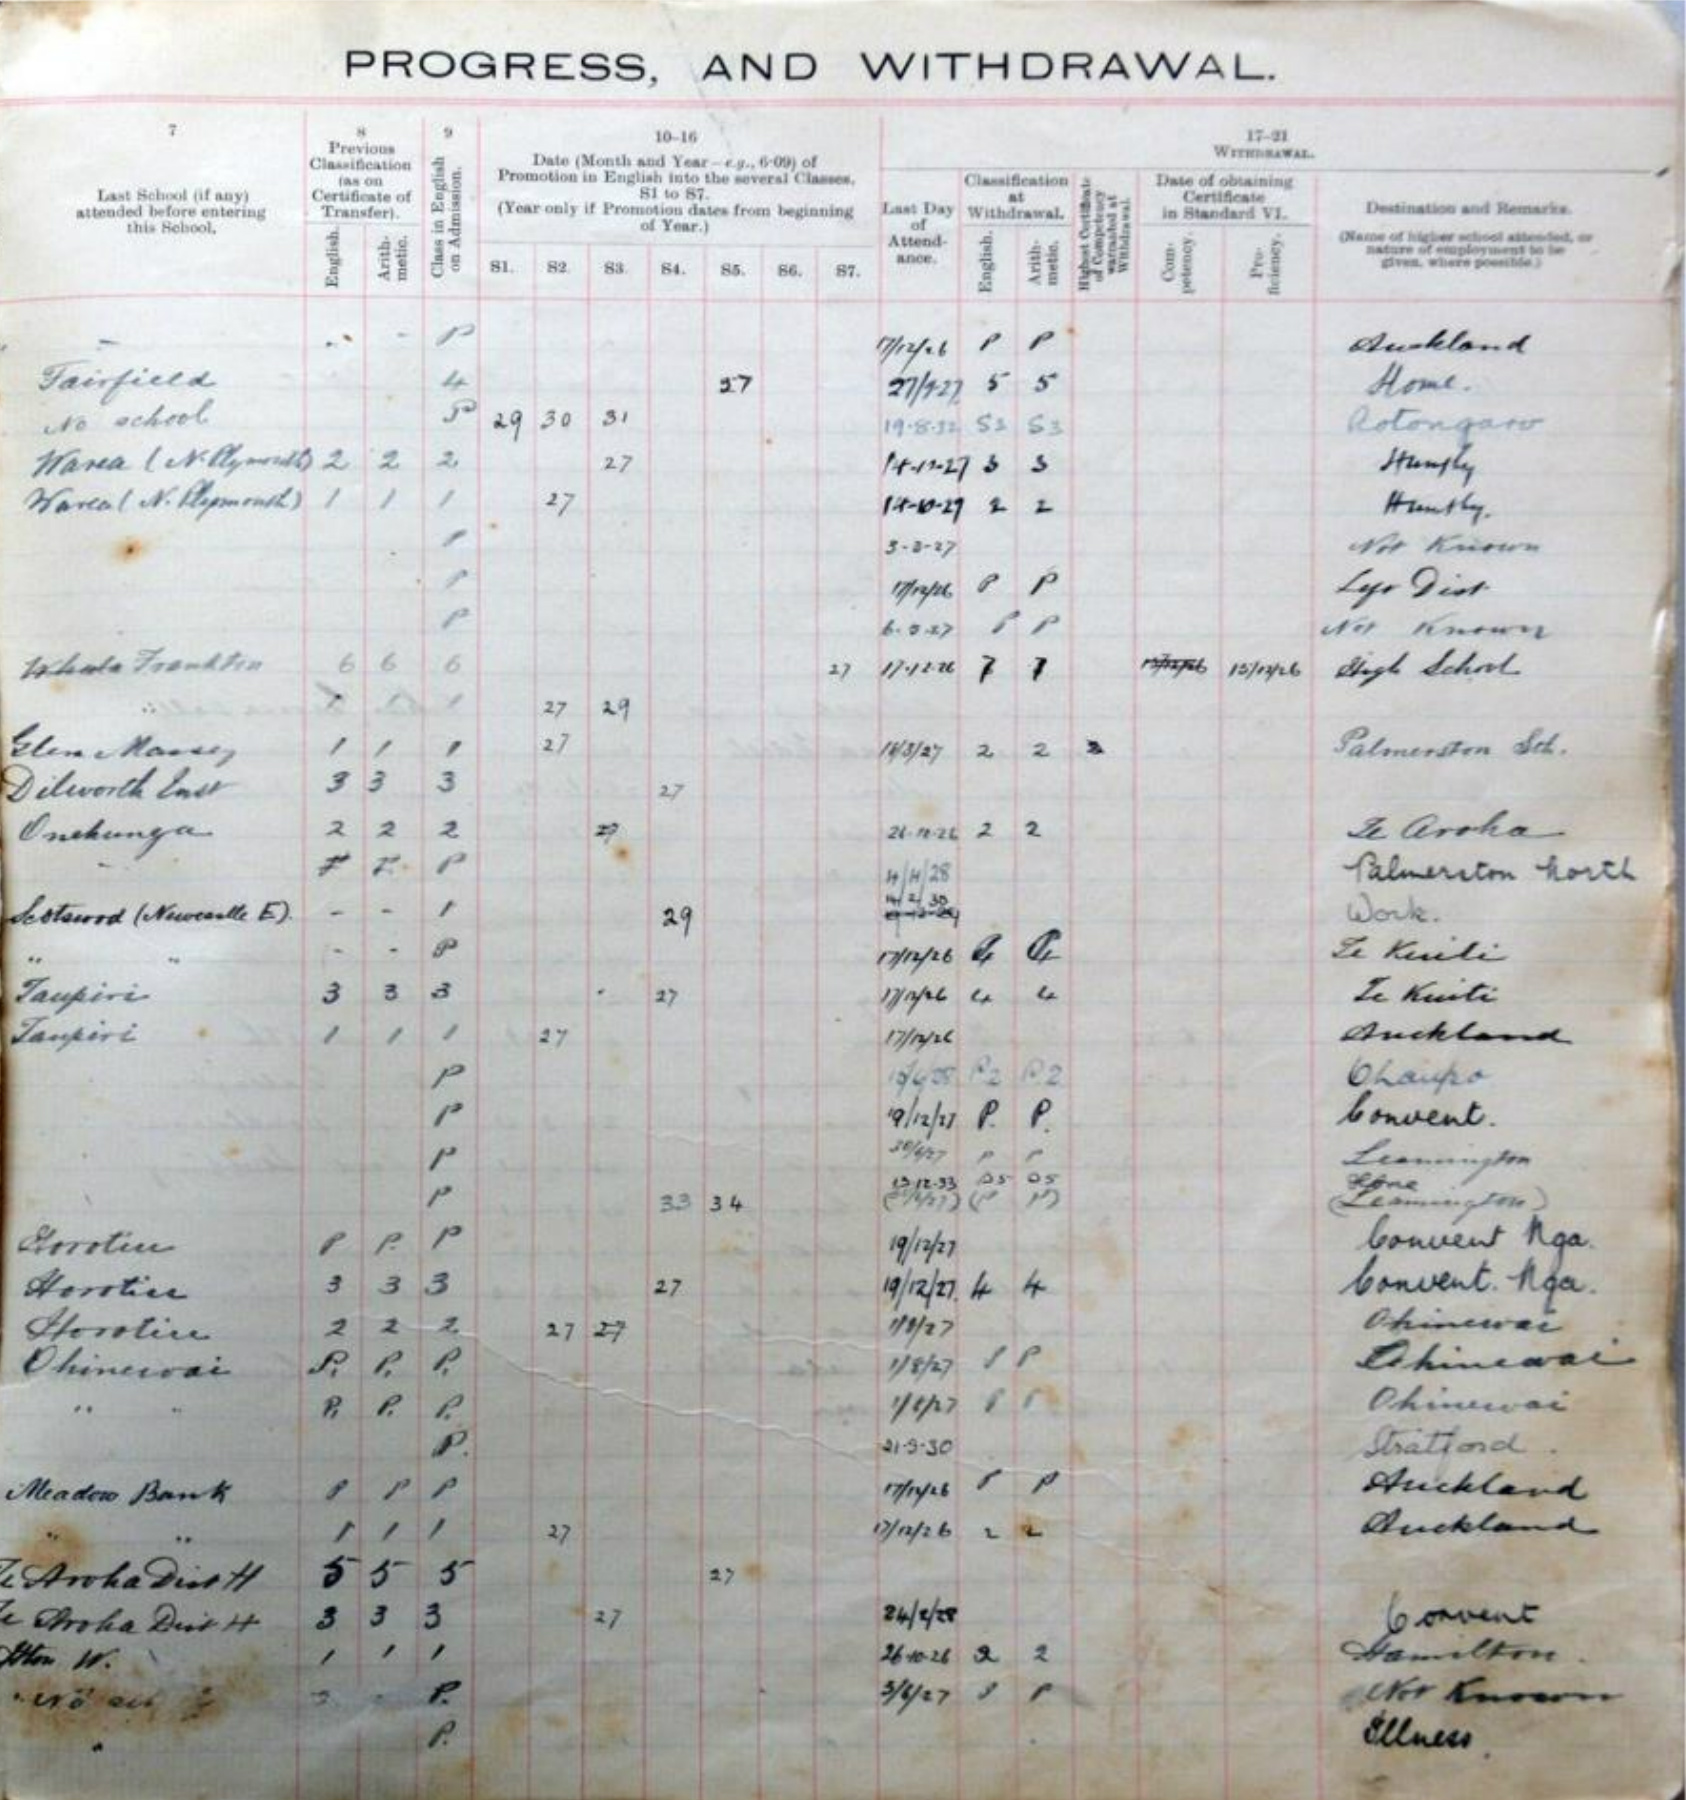 PROGRESS, AND WITHDRAWAL.
7
Last School (if any) attended before entering this School.
8
Previous Classification (as on Certificate of Transfer).
English.
Arithmetic.
9
Class in English on Admission.
10-16
Date (Month and Year—e.g., 6·09) of Promotion in English into the several Classes, S1 to S7.
(Year only if Promotion dates from beginning of Year.)
S1. S2. S3. S4. S5. S6. S7.
17-21
WITHDRAWAL.
Last Day of Attendance.
Classification at Withdrawal.
English.
Arithmetic.
Highest Certificate of Competency at Withdrawal.
Date of obtaining Certificate in Standard VI.
Competency.
Proficiency.
Destination and Remarks.
(Name of higher school attended, or nature of employment to be given, where possible.)
- - - P 17/12/26 P P Auckland
Fairfield 4 27 5 5 Home.
No school P 29 30 31 19-8-32 S3 S3 Rotongaro
Warea (N. Plymouth) 2 2 2 27 3 3 Huntly
Warea (N. Plymouth) 1 1 1 27 2 2 Huntly.
P Not Known
P 17/12/26 P P Dist
P P P Not Known
Frankton 6 6 6 27 17-12-26 7 7 15/12/26 15/12/26 High School
27 29
Glen Massey 1 1 1 27 16/3/27 2 2 2 Palmerston Sch.
Dilworth Inst 3 3 3 27
Onehunga 2 2 2 27 2 2 Te Aroha
P Palmerston North
Scotswood (Newcastle E). - - 1 29 Work.
" " - - P 17/12/26 Te Kuiti
Taupiri 3 3 3 27 17/12/26 4 4 Te Kuiti
Taupiri 1 1 1 27 17/12/26 Auckland
P P2 P2 Ohaupo
P 19/12/27 P. P. Convent.
P 30/6/27 P P Leamington
P 33 34 13-12-33 S5 S5 (P P) (Leamington)
Horotiu P P. P 19/12/27 Convent Nga.
Horotiu 3 3 3 27 19/12/27 4 4 Convent. Nga.
Horotiu 2 2 2 27 27 1/8/27 Ohinewai
Ohinewai P. P. P. 1/8/27 P P Ohinewai
" " P. P. P. 1/8/27 P P Ohinewai
P. 21-3-30 Stratford.
Meadow Bank P P P 17/12/26 P P Auckland
" " 1 1 1 27 17/12/26 2 2 Auckland
Te Aroha Dist H 5 5 5 27
Te Aroha Dist H 3 3 3 27 24/2/28 Convent
W. 1 1 1 26-10-26 2 2 Hamilton.
P. 3/6/27 P P Not Known
P. Illness.